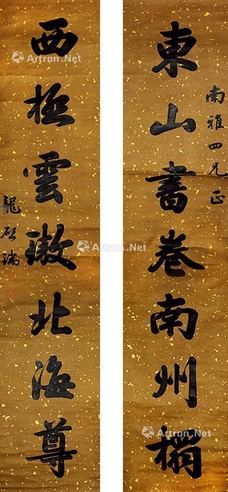 東山書卷南州榻
南雅四兄正
西極雲璈北海尊
龍啟瑞
Artron.Net
Artron.Net
Artron.Net
Artron.Net